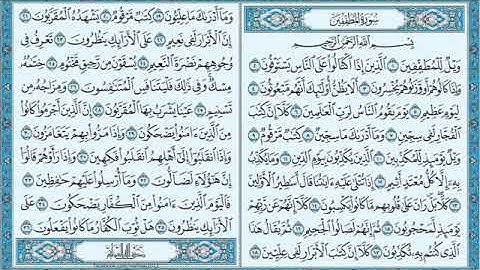 سُورَةُ الْمُطَفِّفِينَ
بِسْمِ اللَّهِ الرَّحْمَٰنِ الرَّحِيمِ
وَيْلٌ لِّلْمُطَفِّفِينَ ١ الَّذِينَ إِذَا اكْتَالُوا عَلَى النَّاسِ يَسْتَوْفُونَ ٢
وَإِذَا كَالُوهُمْ أَو وَّزَنُوهُمْ يُخْسِرُونَ ٣ أَلَا يَظُنُّ أُولَٰئِكَ أَنَّهُم مَّبْعُوثُونَ ٤
لِيَوْمٍ عَظِيمٍ ٥ يَوْمَ يَقُومُ النَّاسُ لِرَبِّ الْعَٰلَمِينَ ٦ كَلَّا إِنَّ كِتَٰبَ
الْفُجَّارِ لَفِي سِجِّينٍ ٧ وَمَا أَدْرَىٰكَ مَا سِجِّينٌ ٨ كِتَٰبٌ مَّرْقُومٌ ٩
وَيْلٌ يَوْمَئِذٍ لِّلْمُكَذِّبِينَ ١٠ الَّذِينَ يُكَذِّبُونَ بِيَوْمِ الدِّينِ ١١ وَمَا يُكَذِّبُ
بِهِ إِلَّا كُلُّ مُعْتَدٍ أَثِيمٍ ١٢ إِذَا تُتْلَىٰ عَلَيْهِ ءَايَٰتُنَا قَالَ أَسَٰطِيرُ الْأَوَّلِينَ
١٣ كَلَّا بَلْ رَانَ عَلَىٰ قُلُوبِهِم مَّا كَانُوا يَكْسِبُونَ ١٤ كَلَّا إِنَّهُمْ عَن رَّبِّهِمْ
يَوْمَئِذٍ لَّمَحْجُوبُونَ ١٥ ثُمَّ إِنَّهُمْ لَصَالُوا الْجَحِيمِ ١٦ ثُمَّ يُقَالُ هَٰذَا
الَّذِي كُنتُم بِهِ تُكَذِّبُونَ ١٧ كَلَّا إِنَّ كِتَٰبَ الْأَبْرَارِ لَفِي عِلِّيِّينَ ١٨
وَمَا أَدْرَىٰكَ مَا عِلِّيُّونَ ١٩ كِتَٰبٌ مَّرْقُومٌ ٢٠ يَشْهَدُهُ الْمُقَرَّبُونَ ٢١
إِنَّ الْأَبْرَارَ لَفِي نَعِيمٍ ٢٢ عَلَى الْأَرَائِكِ يَنظُرُونَ ٢٣ تَعْرِفُ فِي
وُجُوهِهِمْ نَضْرَةَ النَّعِيمِ ٢٤ يُسْقَوْنَ مِن رَّحِيقٍ مَّخْتُومٍ ٢٥ خِتَٰمُهُ
مِسْكٌ وَفِي ذَٰلِكَ فَلْيَتَنَافَسِ الْمُتَنَٰفِسُونَ ٢٦ وَمِزَاجُهُ مِن
تَسْنِيمٍ ٢٧ عَيْنًا يَشْرَبُ بِهَا الْمُقَرَّبُونَ ٢٨ إِنَّ الَّذِينَ أَجْرَمُوا كَانُوا
مِنَ الَّذِينَ ءَامَنُوا يَضْحَكُونَ ٢٩ وَإِذَا مَرُّوا بِهِمْ يَتَغَامَزُونَ ٣٠
وَإِذَا انقَلَبُوا إِلَىٰ أَهْلِهِمُ انقَلَبُوا فَكِهِينَ ٣١ وَإِذَا رَأَوْهُمْ قَالُوا
إِنَّ هَٰؤُلَاءِ لَضَالُّونَ ٣٢ وَمَا أُرْسِلُوا عَلَيْهِمْ حَٰفِظِينَ ٣٣
فَالْيَوْمَ الَّذِينَ ءَامَنُوا مِنَ الْكُفَّارِ يَضْحَكُونَ ٣٤ عَلَى
الْأَرَائِكِ يَنظُرُونَ ٣٥ هَلْ ثُوِّبَ الْكُفَّارُ مَا كَانُوا يَفْعَلُونَ ٣٦